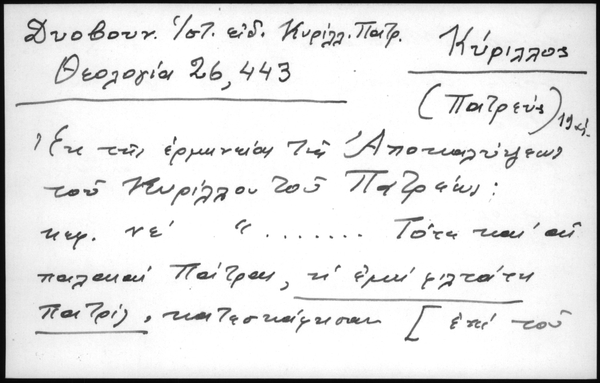 Δυοβουν. Ἱστ. εἰδ. Κυρίλλ. Πατρ.
Θεολογία 26, 443
Κύριλλος
(Πατρεύς)
Ἐκ τῆς ἑρμηνείας τῆς Ἀποκαλύψεως
τοῦ Κυρίλλου τοῦ Πατρέως:
κεφ. νε' "....... Τότε και αἱ
παλαιαὶ Πάτραι, ἡ ἐμὴ φιλτάτη
πατρίς, κατεσκάφησαν [ἐπὶ τοῦ